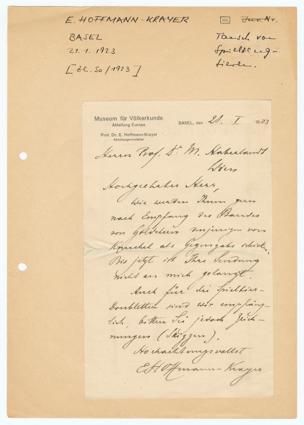 E. HOFFMANN-KRAYER
BASEL
21.1.1923
[Zl. 50/1923]
Inv. Nr.
Tausch von
Museum für Völkerkunde
Abteilung Europa
Prof. Dr. E. Hoffmann-Krayer
Abteilungsvorsteher
BASEL, den 20. I 1923
Herrn Prof. Dr M. Haberlandt
Wien
Hochgeehrter Herr,
Wir werden Ihnen gern
nach Empfang des Bandes
von
als Gegengabe schicken.
Bis jetzt ist Ihre Sendung
nicht an mich gelangt.
Auch für die
Doubletten sind wir empfäng-
lich, bitten Sie jedoch Zeich-
nungen (Skizzen).
Hochachtungsvollst
E. Hoffmann-Krayer